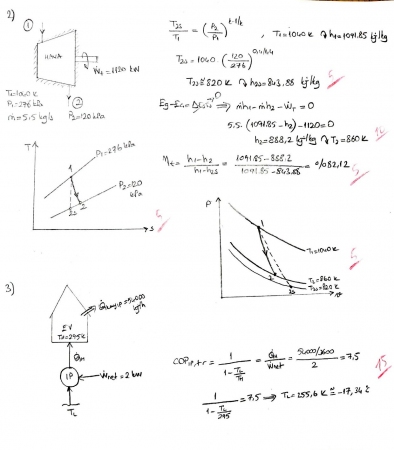 2)
①
HAVA
Ẇt = 1120 kW
T1=1040K
P1=276 kPa
ṁ=5.5 kg/s
② P2=120 kPa
T2s/T1 = (P2/P1)^k-1/k , T1=1040K ↷ h1=1091.85 kJ/kg
T2s = 1040 (120/276)^0,4/1.4
T2s ≅ 820 K ↷ h2s= 843,88 kJ/kg
Eg-Eç= ΔEsist → 0 ⟹ ṁh1-ṁh2-Ẇt=0
5.5. (1091.85-h2) -1120=0
h2=888,2 kJ/kg ↷ T2=860K
ηt = h1-h2 / h1-h2s = 1091.85-888.2 / 1091.85-843.88 = %82,12
T
1
P1=276 kPa
P2=120 kPa
2s
2
s
P
T1=1040K
T2=860K
T2s=820K
2
2s
3)
EV
TH=295K
Q̇kayıp=54000 kJ/h
Q̇H
IP
Ẇnet = 2 kW
TL
COP IP,tr = 1 / 1-TL/TH = Q̇H / Ẇnet = 54000/3600 / 2 = 7,5
15
1 / 1-TL/295 = 7,5 ⟹ TL=255,6 K ≅ -17,34 °C